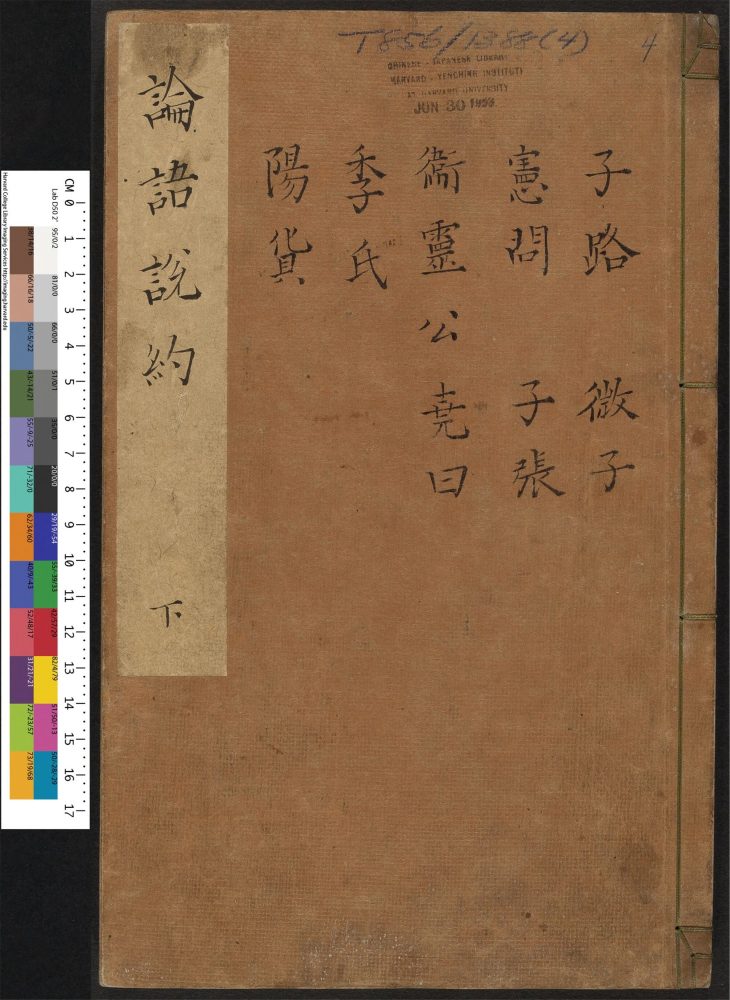 T856/1388(4)
4
CHINESE - JAPANESE LIBRARY
HARVARD - YENCHING INSTITUTE
AT HARVARD UNIVERSITY
JUN 30 1953
子路 微子
憲問 子張
衛靈公 堯曰
季氏
陽貨
論語說約 下
CM 0 1 2 3 4 5 6 7 8 9 10 11 12 13 14 15 16 17
Harvard College Library Imaging Services http://imaging.harvard.edu
Lab D50 2°
95/0/2
81/0/0
66/0/0
51/0/1
35/0/0
20/0/0
29/19/-54
55/-39/33
42/57/29
82/4/79
51/50/-13
50/-28/-29
38/14/16
66/16/18
50/-5/-22
43/-14/21
55/-9/-25
71/-32/0
62/34/60
40/9/-43
52/48/17
31/21/-21
72/-23/57
73/19/68